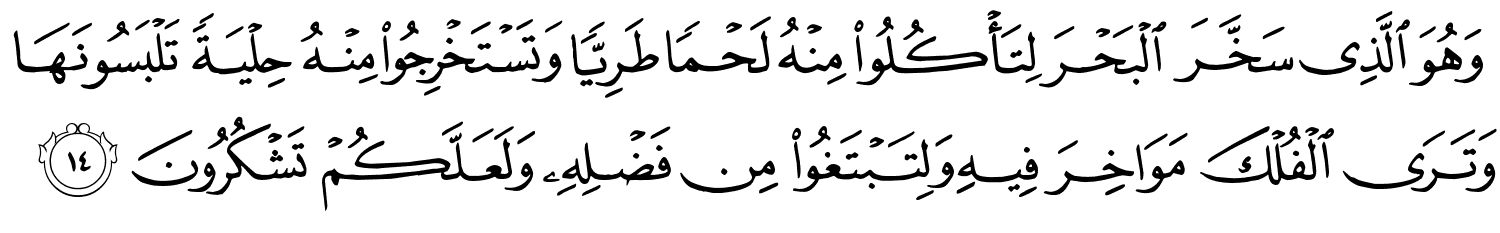 وَهُوَ ٱلَّذِى سَخَّرَ ٱلْبَحْرَ لِتَأْكُلُوا۟ مِنْهُ لَحْمًا طَرِيًّا وَتَسْتَخْرِجُوا۟ مِنْهُ حِلْيَةً تَلْبَسُونَهَا
وَتَرَى ٱلْفُلْكَ مَوَاخِرَ فِيهِ وَلِتَبْتَغُوا۟ مِن فَضْلِهِۦ وَلَعَلَّكُمْ تَشْكُرُونَ ١٤